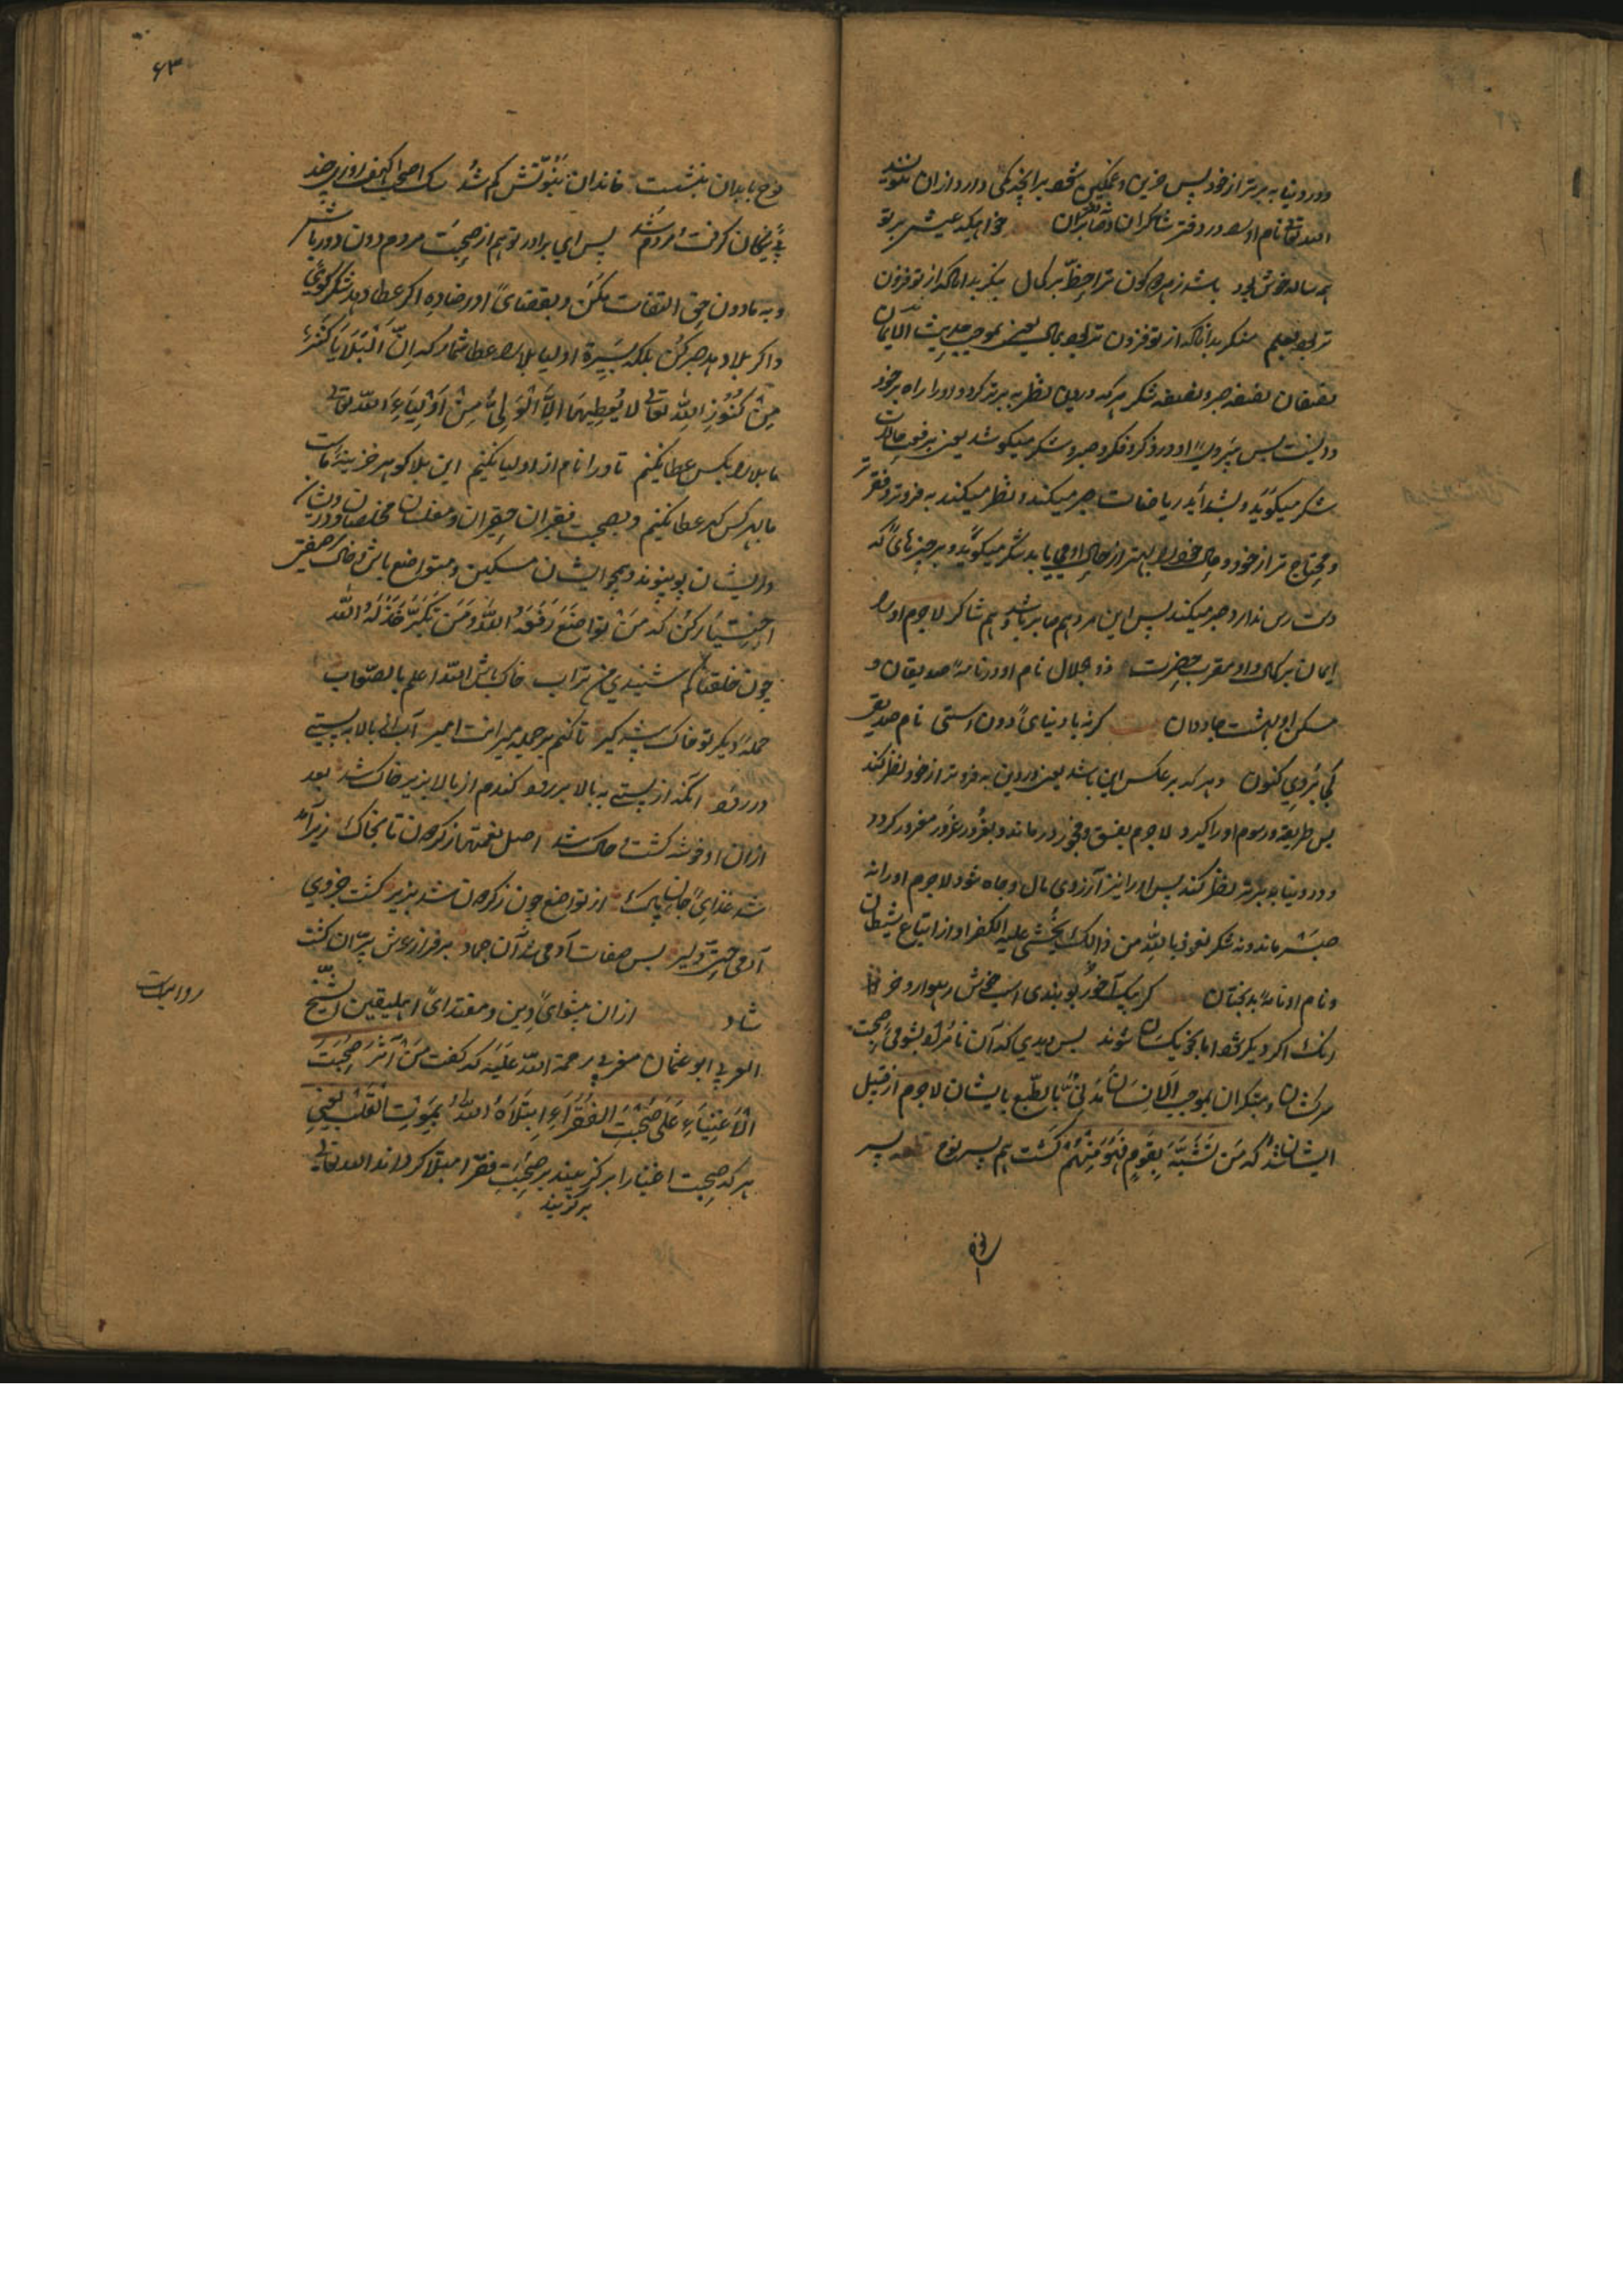 ودر دنیا به برتر از خود پس حزین و غمگین شود برانچه کمی دارد از آن ننویسد
الله تعالی نام او را در دفتر شاکران و نه صابران خواهیکه عیش بر تو
همه ساله خوش بود باشد ز هر دو کون ترا حظّ بر کمال بنگر بدانکه از تو فزون
تر بود بعلم منگر بدانکه از تو فزون تر بود بمال یعنی بموجب حدیث الایمان
نصفان نصفه صبر و نصفه شکر هر که در دین نظر به برتر کرد و او را راه بر خود
دانست پس پیروئ او در ذکر و فکر و صبر و شکر میکوشد یعنی بر نعمت حالات
شکر میگوید و بشدائد ریاضات صبر میکند و نظر میکند به فروتر و فقیر
و محتاج تر از خود و حال خود را بهتر از حال او می یابد شکر میگوید و بر چیزهائ که
دست رس ندارد صبر میکند پس این مرد هم صابر باشد و هم شاکر لاجرم او را
ایمان بر کمال و او مقرب حضرت ذو الجلال نام او در نامهٔ صدیقان و
مسکن او بهشت جاودان گر نه با دنیائ دون استی نام صدیق
کی بردی کنون و هر که بر عکس این باشد یعنی در دین به فروتر از خود نظر کند
پس طریقه و رسوم او را گیرد لاجرم بفسق و فجور درماند و بغرور غرور مغرور گردد
و در دنیا به برتر نظر کند پس او را نیز آرزوی مال و جاه شود لاجرم او را نه
صبر ماند و نه شکر نعوذ بالله من ذالک یخشی علیه الکفر او از اتباع شیطان
و نام او نامهٔ بدبختان گر بیک آخور تو بندی اسپ خوش رهوار و خر
رنگ اگر دیگر شود اما بخو یکسان شوند پس دیدی که آن نامراد بشومی صحبت
سرکشان و متکبران بموجب الانسان مدنیٌّ بالطّبع بایشان لاجرم از قبیل
ایشان شد که مَن تَشَبَّهَ بِقَومٍ فَهُوَ مِنهُم گشت هم پسر نوح قطعه پسر
نوح
۶۳
نوح با بدان بنشست خاندان نبوّتش گم شد سگ اصحاب کهف روزی چند
پئ نیکان گرفت و مردم شد پس ای برادر تو هم از صحبت مردم دون دور باش
و به مادون حق التفات مکن و بقضائ او رضا ده اگر عطا دهد شکر گوئی
و اگر بلا دهد صبر کن بلکه بسیرة اولیا بلا را عطا شمار که اِنَّ اَلبَلایا کَنزٌ
مِن کُنُوزِ الله تعالی لا یُعطِیهَا اِلاَّ الوَلِیُّ مِن اَولِیَاءِ الله تعالی
ما بلا را بکس عطا نکنیم تا ورا نام از اولیا نکنیم این بلا گوهر خزینهٔ ماست
ما بهر کس گهر عطا نکنیم و بصحبت فقیران حقیران و مفلسان مخلصان و درویشان
دل ریشان بپیوند و همچو ایشان مسکین و متواضع باش و خاک صفتی
اختیار کن که مَن تواضَعَ رَفَعَهُ اللهُ وَمَن تَکَبَّرَ خَذَلَهُ الله
چون خلقناکم شنیدی من تراب خاک باش الله اعلم بالصّواب
حملهٔ دیگر تو خاکی پیشه گیر تا کنم بر جمله میرانت امیر آب از بالا به پستی
در رود آنگه از پستی به بالا بر رود گندم از بالا بزیر خاک شد بعد
ازان او خوشه گشت و چالاک شد اصل نعمتها ز گردون تا بخاک زیر آمد
شد غذائ جان پاک از تواضع چون ز گردون شد بزیر گشت جزوی
آدمی حیّ دلیر پس صفات آدمی شد آن جماد بر فراز عرش پرّان گشت
شاد ازان پیشوائ دین و مقتدائ اهل یقین الشیخ
العربی ابو عثمان مغربی رحمة الله علیه که گفت مَن آثَرَ صُحبَتَ
الاَغنِیَاءِ عَلَی صُحبَتِ الفُقَرَاءِ اِبتَلَاهُ اللهُ بِمَوتِ القَلبِ یعنی
هر که صحبت اغنیا را بر گزیند بر صحبت فقرا مبتلا گرداند الله تعالی
برگزیند
روایت